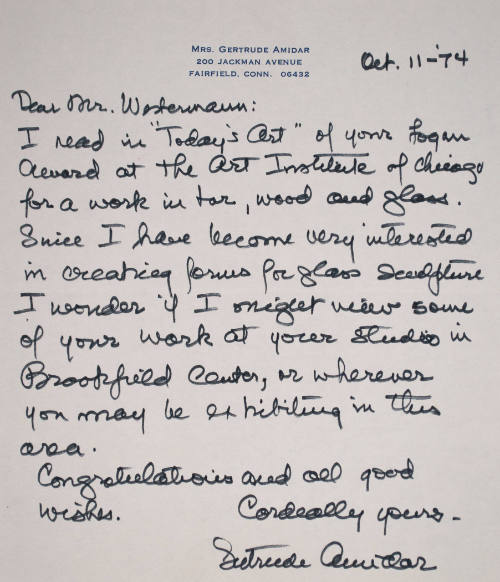 MRS. GERTRUDE AMIDAR
200 JACKMAN AVENUE
FAIRFIELD, CONN. 06432
Oct. 11-'74
Dear Mr. Westermann:
I read in "Today's Art" of your Logan
Award at the Art Institute of Chicago
for a work in tar, wood and glass.
Since I have become very interested
in creating forms for glass sculpture
I wonder if I might view some
of your work at your studio in
Brookfield Center, or wherever
you may be exhibiting in this
area.
Congratulations and all good
wishes.
Cordially yours -
Gertrude Amidar